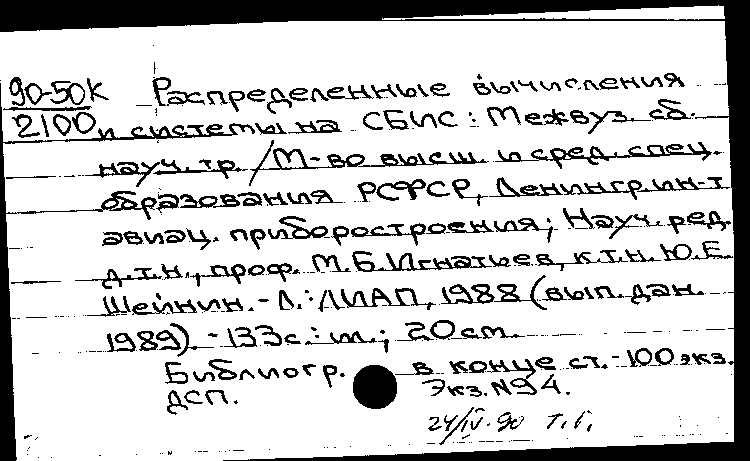 90-50к Распределенные вычисления
2100 и системы на СБИС: Межвуз. сб.
науч. тр. / М-во высш. и сред. спец.
образования РСФСР, Ленингр. ин-т
авиац. приборостроения; Науч. ред.
д.т.н., проф. М.Б. Игнатьев, к.т.н. Ю.Е.
Шейнин. - Л.: ЛИАП, 1988 (вып. дан.
1989). - 133 с.: ил.; 20 см.
Библиогр. в конце ст. - 100 экз.
ДСП. Экз. №94.
24/IV-90 Т.Г.